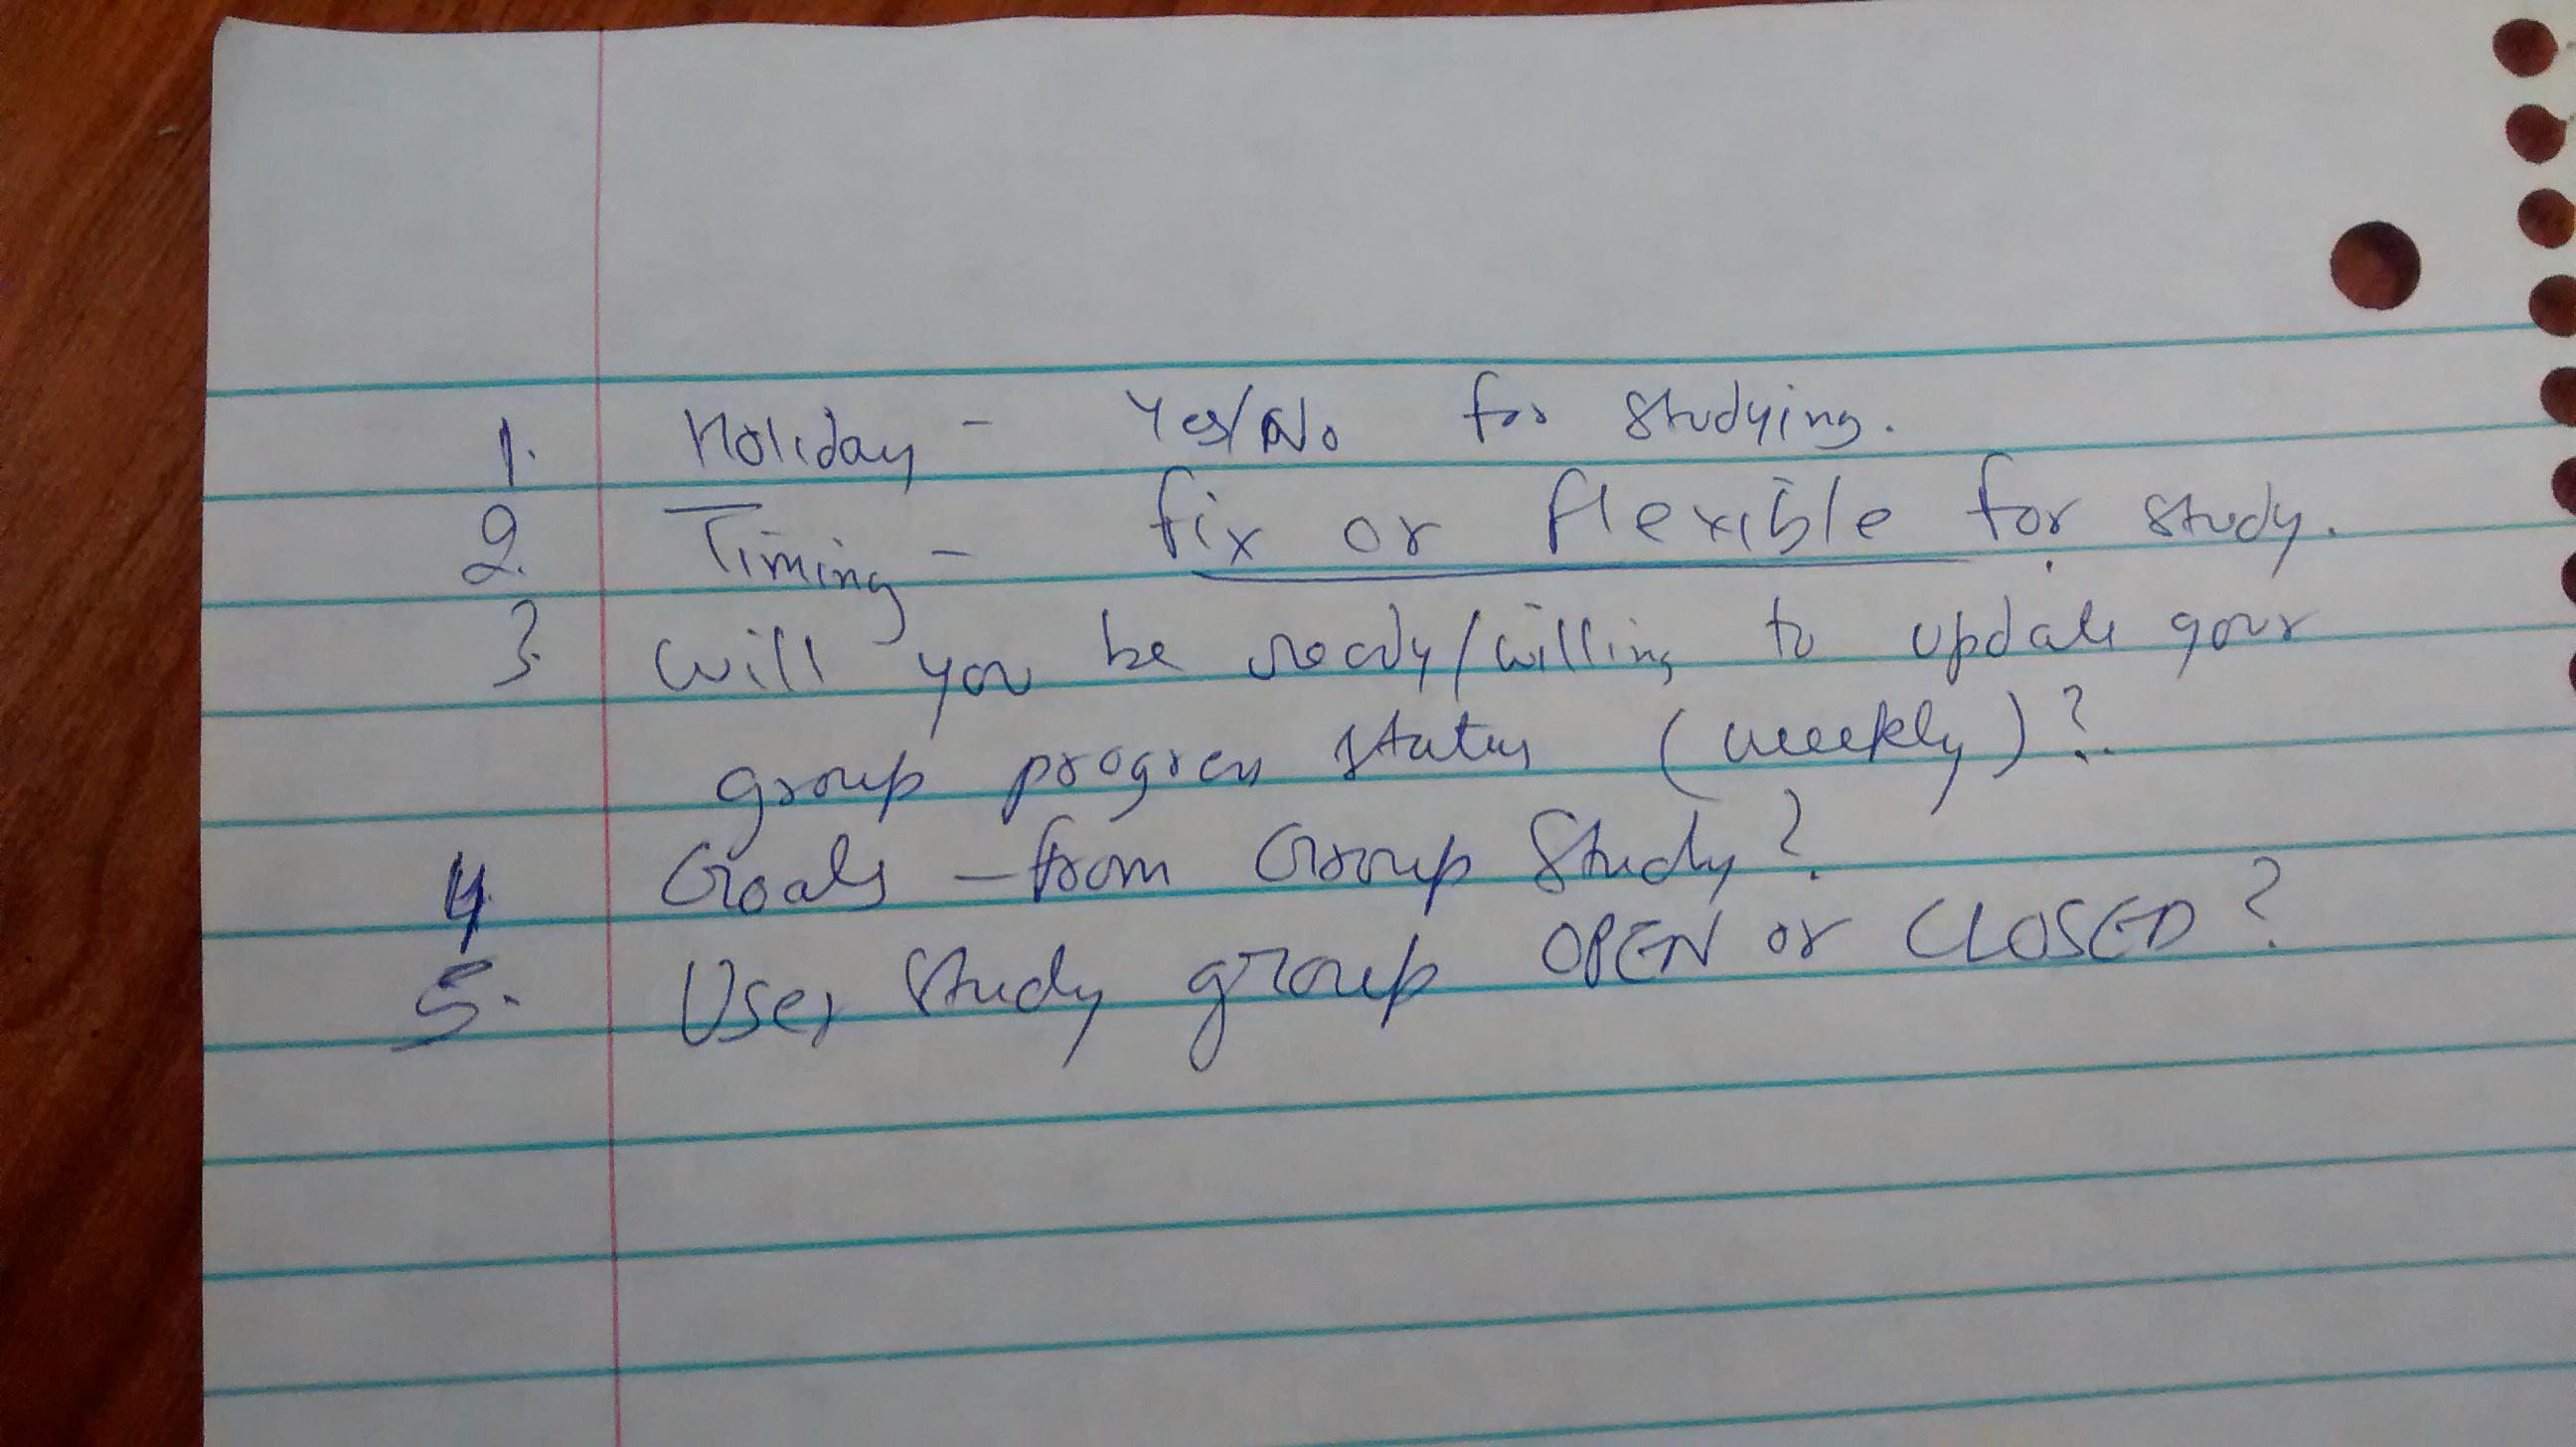 1. Holiday - Yes/No for studying.
2. Timing - fix or flexible for study.
3. Will you be ready/willing to update your
group progress status (weekly)?
4. Goals - from Group Study?
5. User study group OPEN or CLOSED?